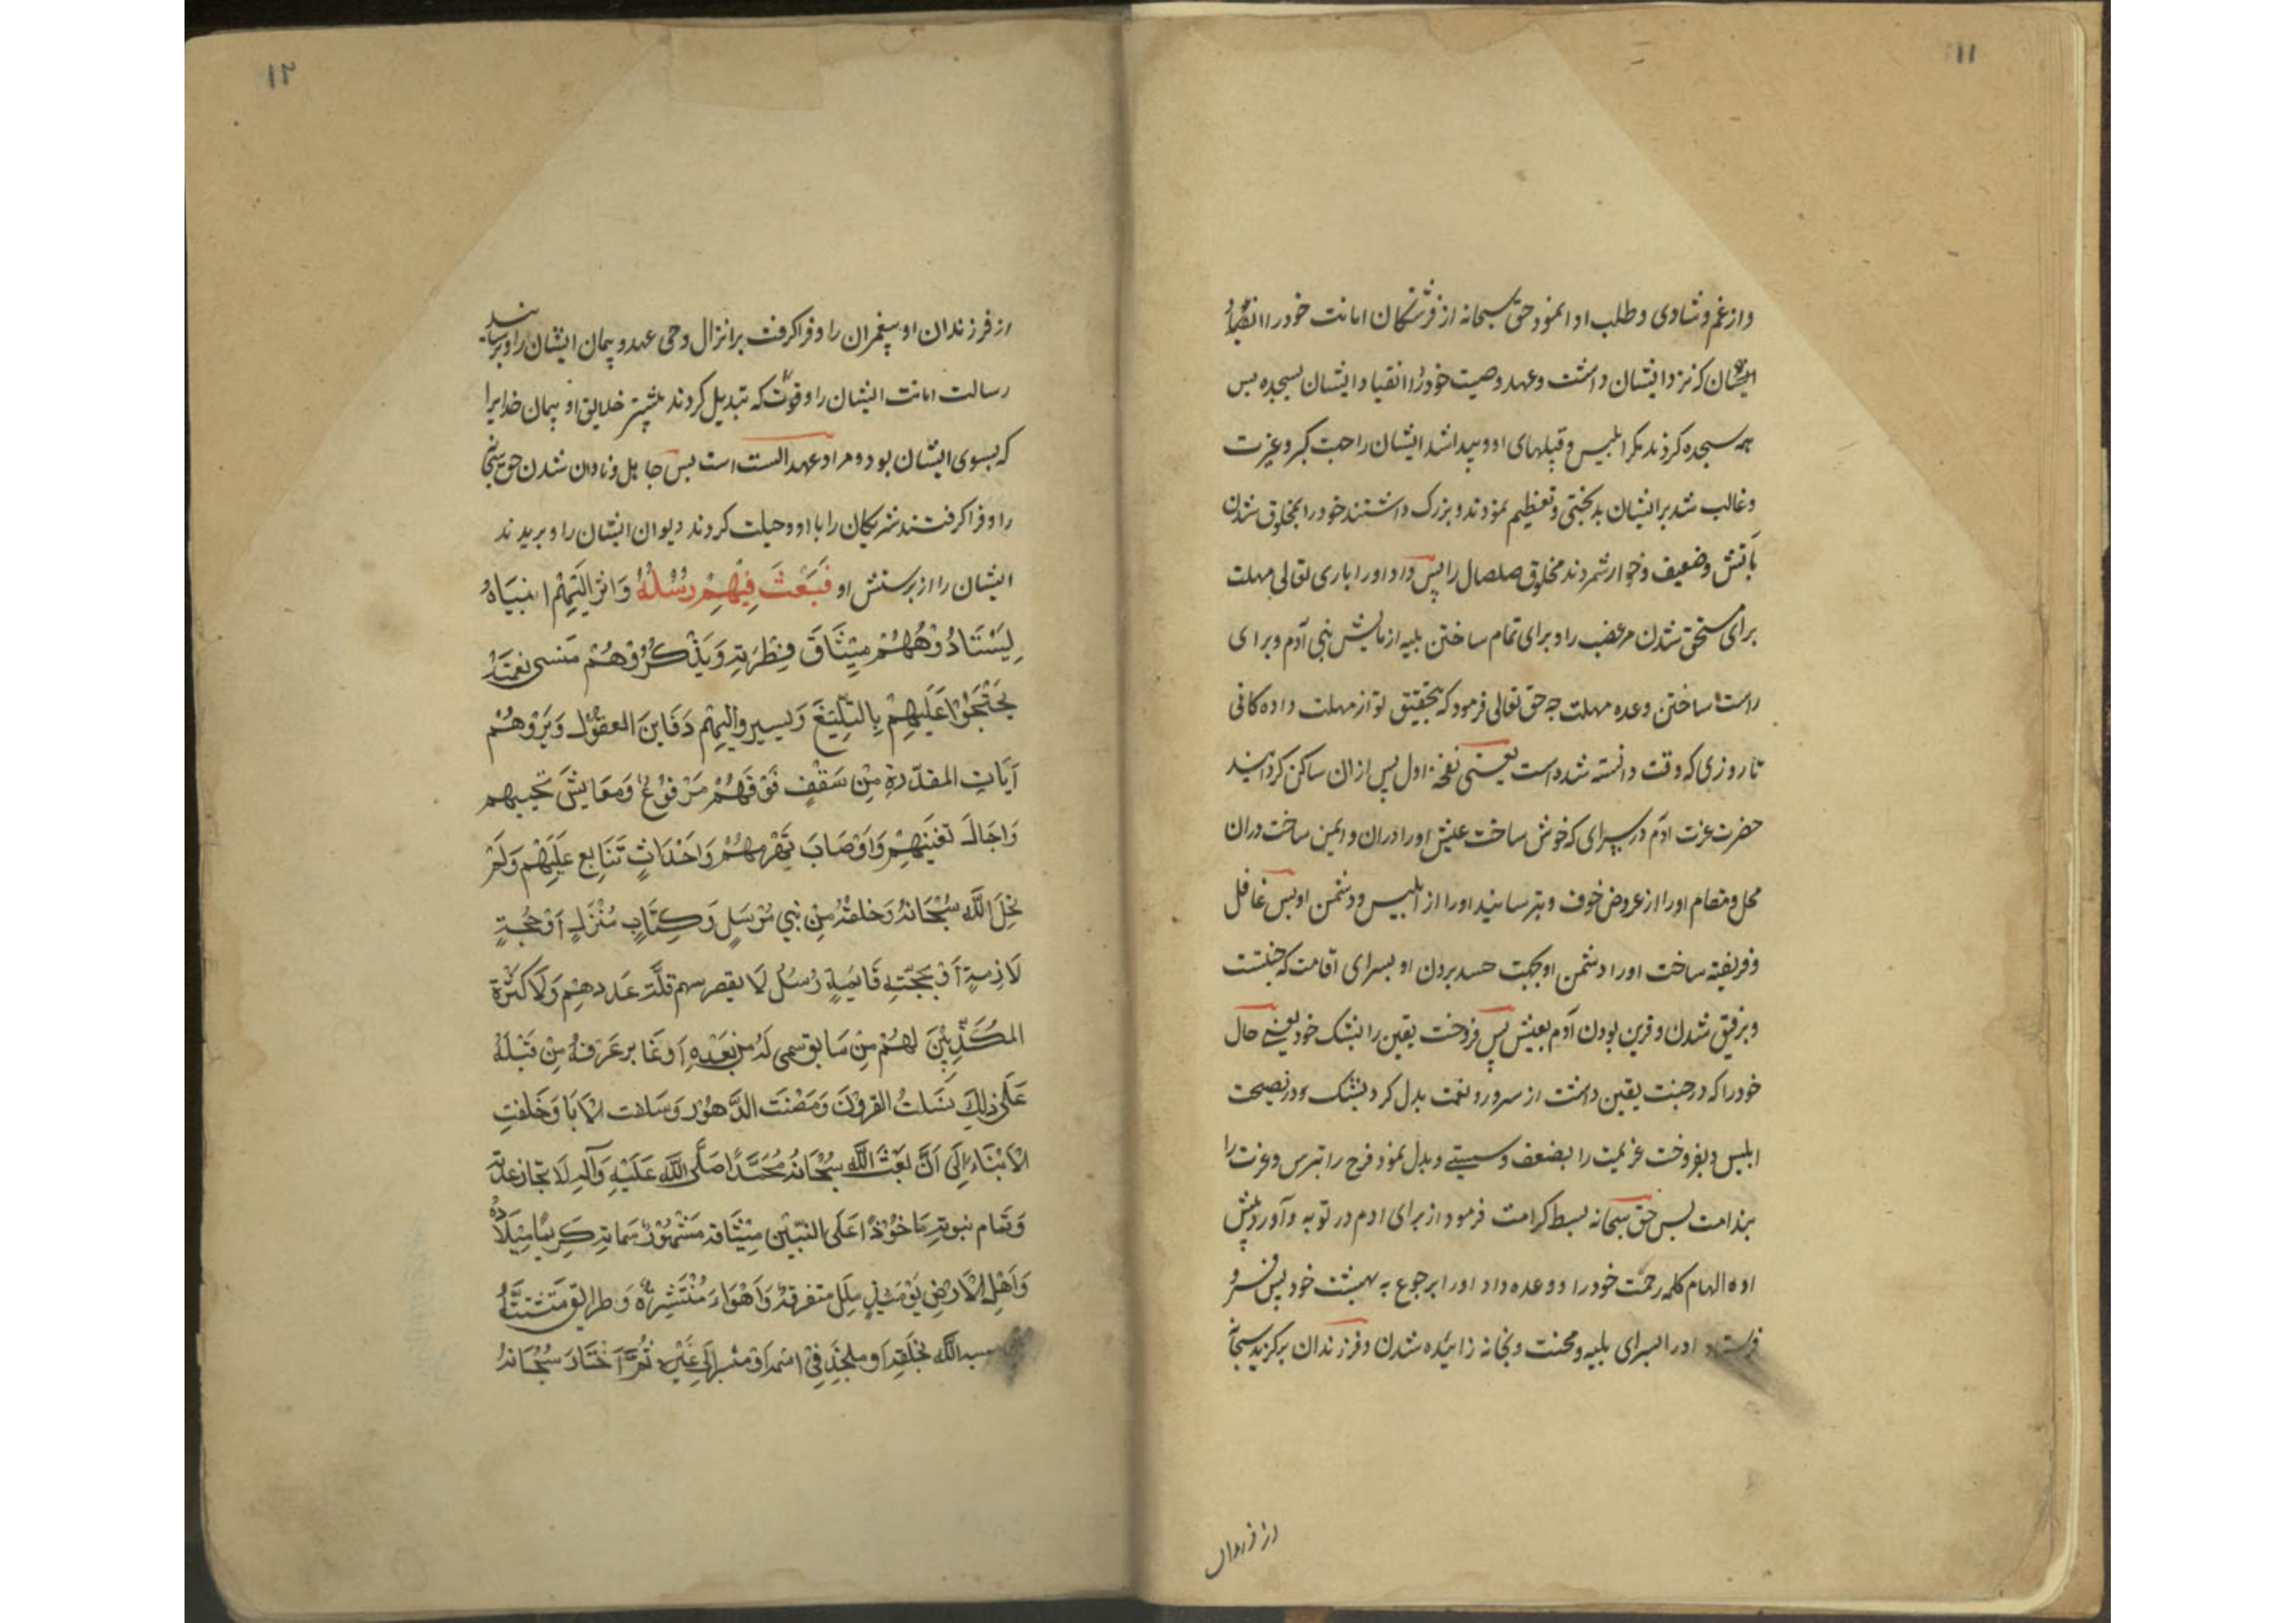 ۱۱
و از غم و شادی و طلب ادا نمود حق سبحانه از فرشتگان امانت خود را
ایشان که نزد ایشان داشت و عهد وصیت خود را انقیاد ایشان بسجده پس
همه سجده کردند مکر ابلیس و قبیلهای او و پیدا شد ایشان را حمیت کبر و عزت
و غالب شد بر ایشان بدبختی و تعظیم نمودند و بزرک داشتند خود را بمخلوق شدن
بآتش و ضعیف و خوار شمردند مخلوق صلصال را پس داد او را باری تعالی مهلت
برای مستحق شدن مر غضب را و برای تمام ساختن بلیه ازمایش بنی آدم و برای
راست ساختن وعده مهلت چه حق تعالی فرمود که بتحقیق تو از مهلت داده کانی
تا روزی که وقت دانسته شده است یعنی نفخه اول پس ازان ساکن کردانید
حضرت عزت ادم در سرای که خوش ساخت عیش او را دران و ایمن ساخت دران
محل و مقام او را از عروض خوف و بترسانید او را از ابلیس و دشمن او پس غافل
و فریفته ساخت او را دشمن او بجهت حسد بردن او بسرای اقامت که جنتست
و برفیق شدن و قرین بودن آدم بعیش پس فروخت یقین را بشک خود یعنی حال
خود را که در جنت یقین داشت از سرور و نعمت بدل کرد بشک و در نصیحت
ابلیس و بفروخت عزیمت را بضعف و سستی و بدل نمود فرح را بترس و عزت را
بندامت پس حق سبحانه بسط کرامت فرمود از برای ادم در توبه و آورد پیش
او الهام کلمه رحمت خود را و وعده داد او را برجوع به بهشت خود پس فرو
فرستاد او را بسرای بلیه و محنت و بخانه زائیده شدن و فرزندان برکزید سبحانه
از فرزندان
۱۲
از فرزندان او پیغمبران را و فرا کرفت بر انزال وحی عهد و پیمان ایشان را و برسانیدن
رسالت امانت ایشان را وقتی که تبدیل کردند بیشتر خلایق او پیمان خدا یرا
که بسوی ایشان بود و مراد عهد الست است پس جاهل و نادان شدن حق سبحانه
را و فرا کرفتند شریکان را با او و حیلت کردند دیوان ایشان را و بریدند
ایشان را از پرستش او فَبَعَثَ فِیهِمْ رُسُلَهُ وَ اتر الَیْهِمْ انبیاءه
لِیَسْتَادُوهُهُمْ مِیْثَاقَ فِطْرَتِهِ وَیَذْکُرُوْهُمْ مَنسی نِعْمَتِهِ
یَحْتَجُّوْا عَلَیْهِمْ بِالتَّبْلِیغِ وَ یسیروا الیهم دَفَایِنَ العقول وَ یَرُوهُمْ
آیَاتِ المقدّرةِ مِنْ سَقْفٍ فَوْقَهُمْ مَرْفُوْعٍ وَ مَعَایِشَ تُحییهم
وَ اجَالَ تُغْنِیهِمْ وَ اَوْصَابَ تَهْرِمُهُمْ وَ احْدَاثٍ تَتَابِع عَلَیْهِمْ وَلَمْ
یخلَ اللّه سُبْحَانَهُ وَ خلقهُ مِنْ نَبِی مُرْسَلٍ وَ کِتَابٍ مُنْزَلٍ اَوْ حُجَّةٍ
لَازِمةٍ اَوْ مَحَجَّةٍ قَایِمَةٍ رُسُلٌ لَا یقصر بهم قِلَّةُ عَدَدِهِمْ وَلَا کَثْرَة
المُکَذِّبِیْنَ لَهُمْ مِنْ سَابِق سمی لَهُ مَنْ بَعْدَهِ اَوْ غَابر عَرَفَهُ مِنْ قَبْلَهُ
عَلَی ذلِکَ نَسَلَتْ القرونَ وَ مَضَتْ الدُّهُوْر وَ سَلَفت الابا وَ خَلَفَتِ
الاَبْنَاء اِلَی اَنَّ بَعَثَ اللّه سُبْحَانَهُ مُحَمَّدًا صَلَّی اللّه عَلَیْهِ وَ آلِهِ لَا نجاز عدته
وَ تَمَام نبوته مَاخُوْذًا عَلَی النّبیّین مِیْثَاقه مَشْهُوْرَةً سَمَاتِه کَرِیْمًا مِیْلَادُهُ
وَ اَهْلِ الْاَرْضِ یَوْمَئِذٍ مِلَل متفرقة وَ اَهْوَاء مُنْتَشِرَة وَ طرایق مُتَشَتِّتَة
اللّه بخَلقِه او ملحِدٍ فِی اسْمِه اَوْ مشیر اِلَی غَیْرِهِ ثُمَّ اخْتَارَ سُبْحَانَهُ